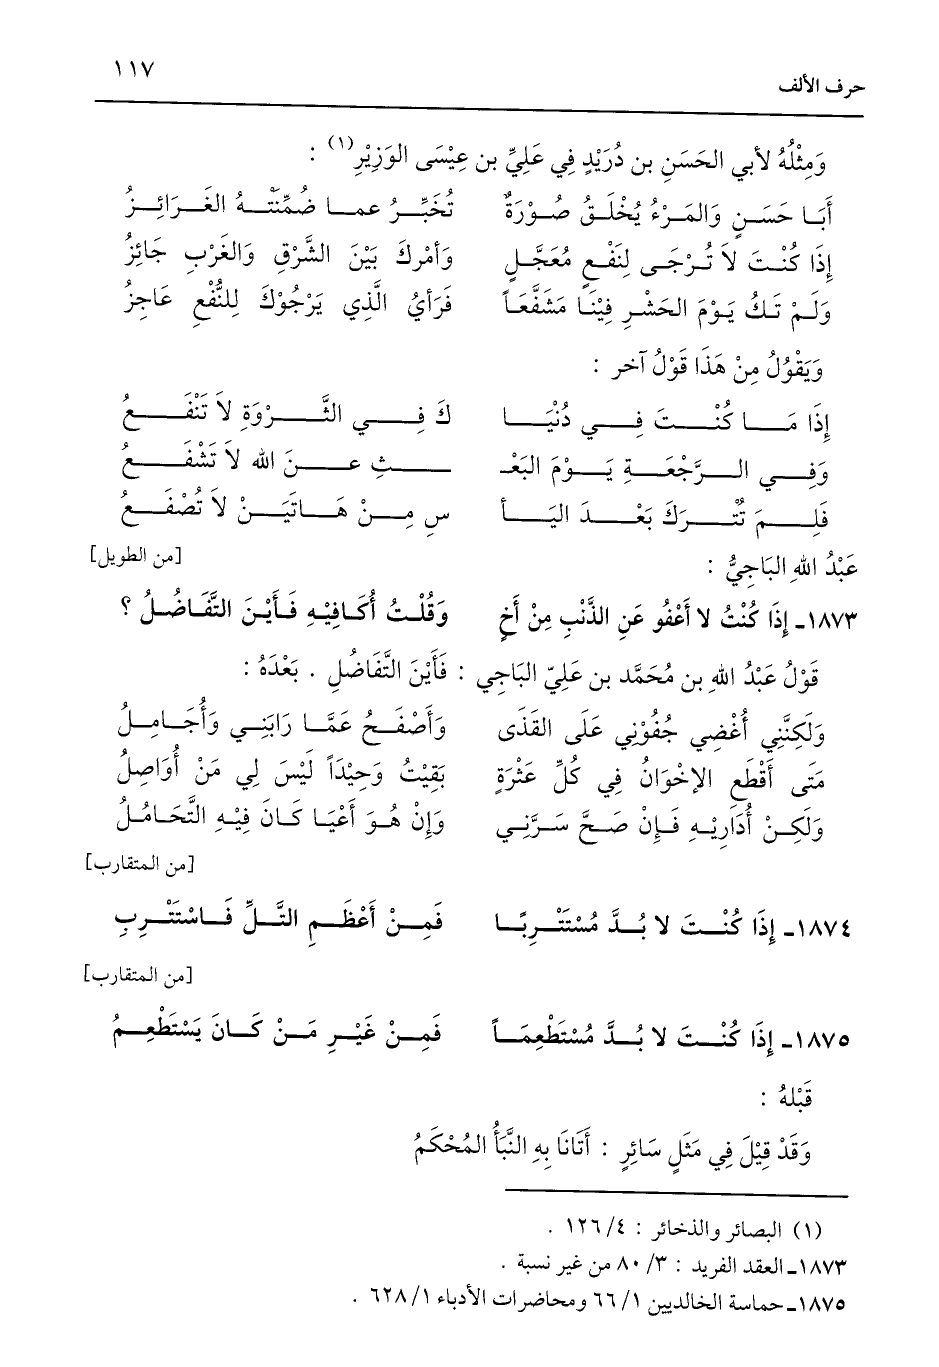 حرف الألف ١١٧
وَمِثْلُهُ لأبي الحَسَنِ بن دُرَيْدٍ فِي عَلِيِّ بن عِيْسَى الوَزِيْرِ(١) :
أَبَا حَسَنٍ وَالمَرْءُ يُخْلَقُ صُوْرَةً تُخَبِّرُ عمَا ضُمِّنَتْهُ الغَرَائِزُ
إِذَا كُنْتَ لاَ تُرْجَى لِنَفْعٍ مُعَجَّلٍ وَأَمْرُكَ بَيْنَ الشَّرْقِ وَالغَرْبِ جَائِزُ
وَلَمْ تَكُ يَوْمَ الحَشْرِ فِيْنَا مَشَفَّعَاً فَرَأيُ الَّذِي يَرْجُوْكَ لِلنَّفْعِ عَاجِزُ
وَيَقُوْلُ مِنْ هَذَا قَوْلُ آخر :
إِذَا مَا كُنْتَ فِي دُنْيَا كَ فِي الثَّرْوَةِ لاَ تَنْفَعُ
وَفِي الرَّجْعَةِ يَوْمَ البَعْـ ـثِ عَنَ الله لاَ تَشْفَعُ
فَلِمَ تُتْرَكَ بَعْدَ اليَأ سِ مِنْ هَاتَيَنْ لاَ تُصْفَعُ
عَبْدُ اللهِ البَاجِيُّ : [من الطويل]
١٨٧٣ـ إِذَا كُنْتُ لا أَعْفُو عَنِ الذَّنْبِ مِنْ أَخٍ وَقُلْتُ أُكَافِيْهِ فَأَيْنَ التَّفَاضُلُ ؟
قَوْلُ عَبْدُ اللهِ بن مُحَمَّد بن عَلِيّ البَاجِي : فَأَيْنَ التَّفَاضُلِ . بَعْدَهُ :
وَلَكِنَّنِي أُغْضِي جُفُوْنِي عَلَى القَذَى وَأَصْفَحُ عَمَّا رَابَنِي وَأُجَامِلُ
مَتَى أَقْطَع الإخْوَانُ فِي كُلِّ عَثْرَةٍ بَقِيْتُ وَحِيْدَاً لَيْسَ لِي مَنْ أُوَاصِلُ
وَلَكِنْ أُدَارِيْهِ فَإِنْ صَحَّ سَرَّنِي وَإِنْ هُوَ أَعْيَا كَانَ فِيْهِ التَّحَامُلُ
[من المتقارب]
١٨٧٤ـ إِذَا كُنْتَ لا بُدَّ مُسْتَتْرِبًا فَمِنْ أَعْظَمِ التَّلِّ فَاسْتَتْرِبِ
[من المتقارب]
١٨٧٥ـ إِذَا كُنْتَ لا بُدَّ مُسْتَطْعِمَاً فَمِنْ غَيْرِ مَنْ كَانَ يَسْتَطْعِمُ
قَبْلهُ :
وَقَدْ قِيْلَ فِي مَثَلٍ سَائِرٍ : أَتَانَا بِهِ النَّبَأُ المُحْكَمُ
(١) البصائر والذخائر : ٤/ ١٢٦ .
١٨٧٣ـ العقد الفريد : ٣/ ٨٠ من غير نسبة .
١٨٧٥ـ حماسة الخالديين ١/ ٦٦ ومحاضرات الأدباء ١/ ٦٢٨ .